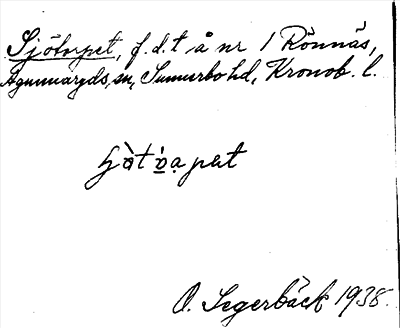 Sjötorpet, f.d.t å nr 1 Rönnäs,
Agunnaryds, sn, Sunnerbo hd, Kronob. l.
O. Segerbäck 1938.